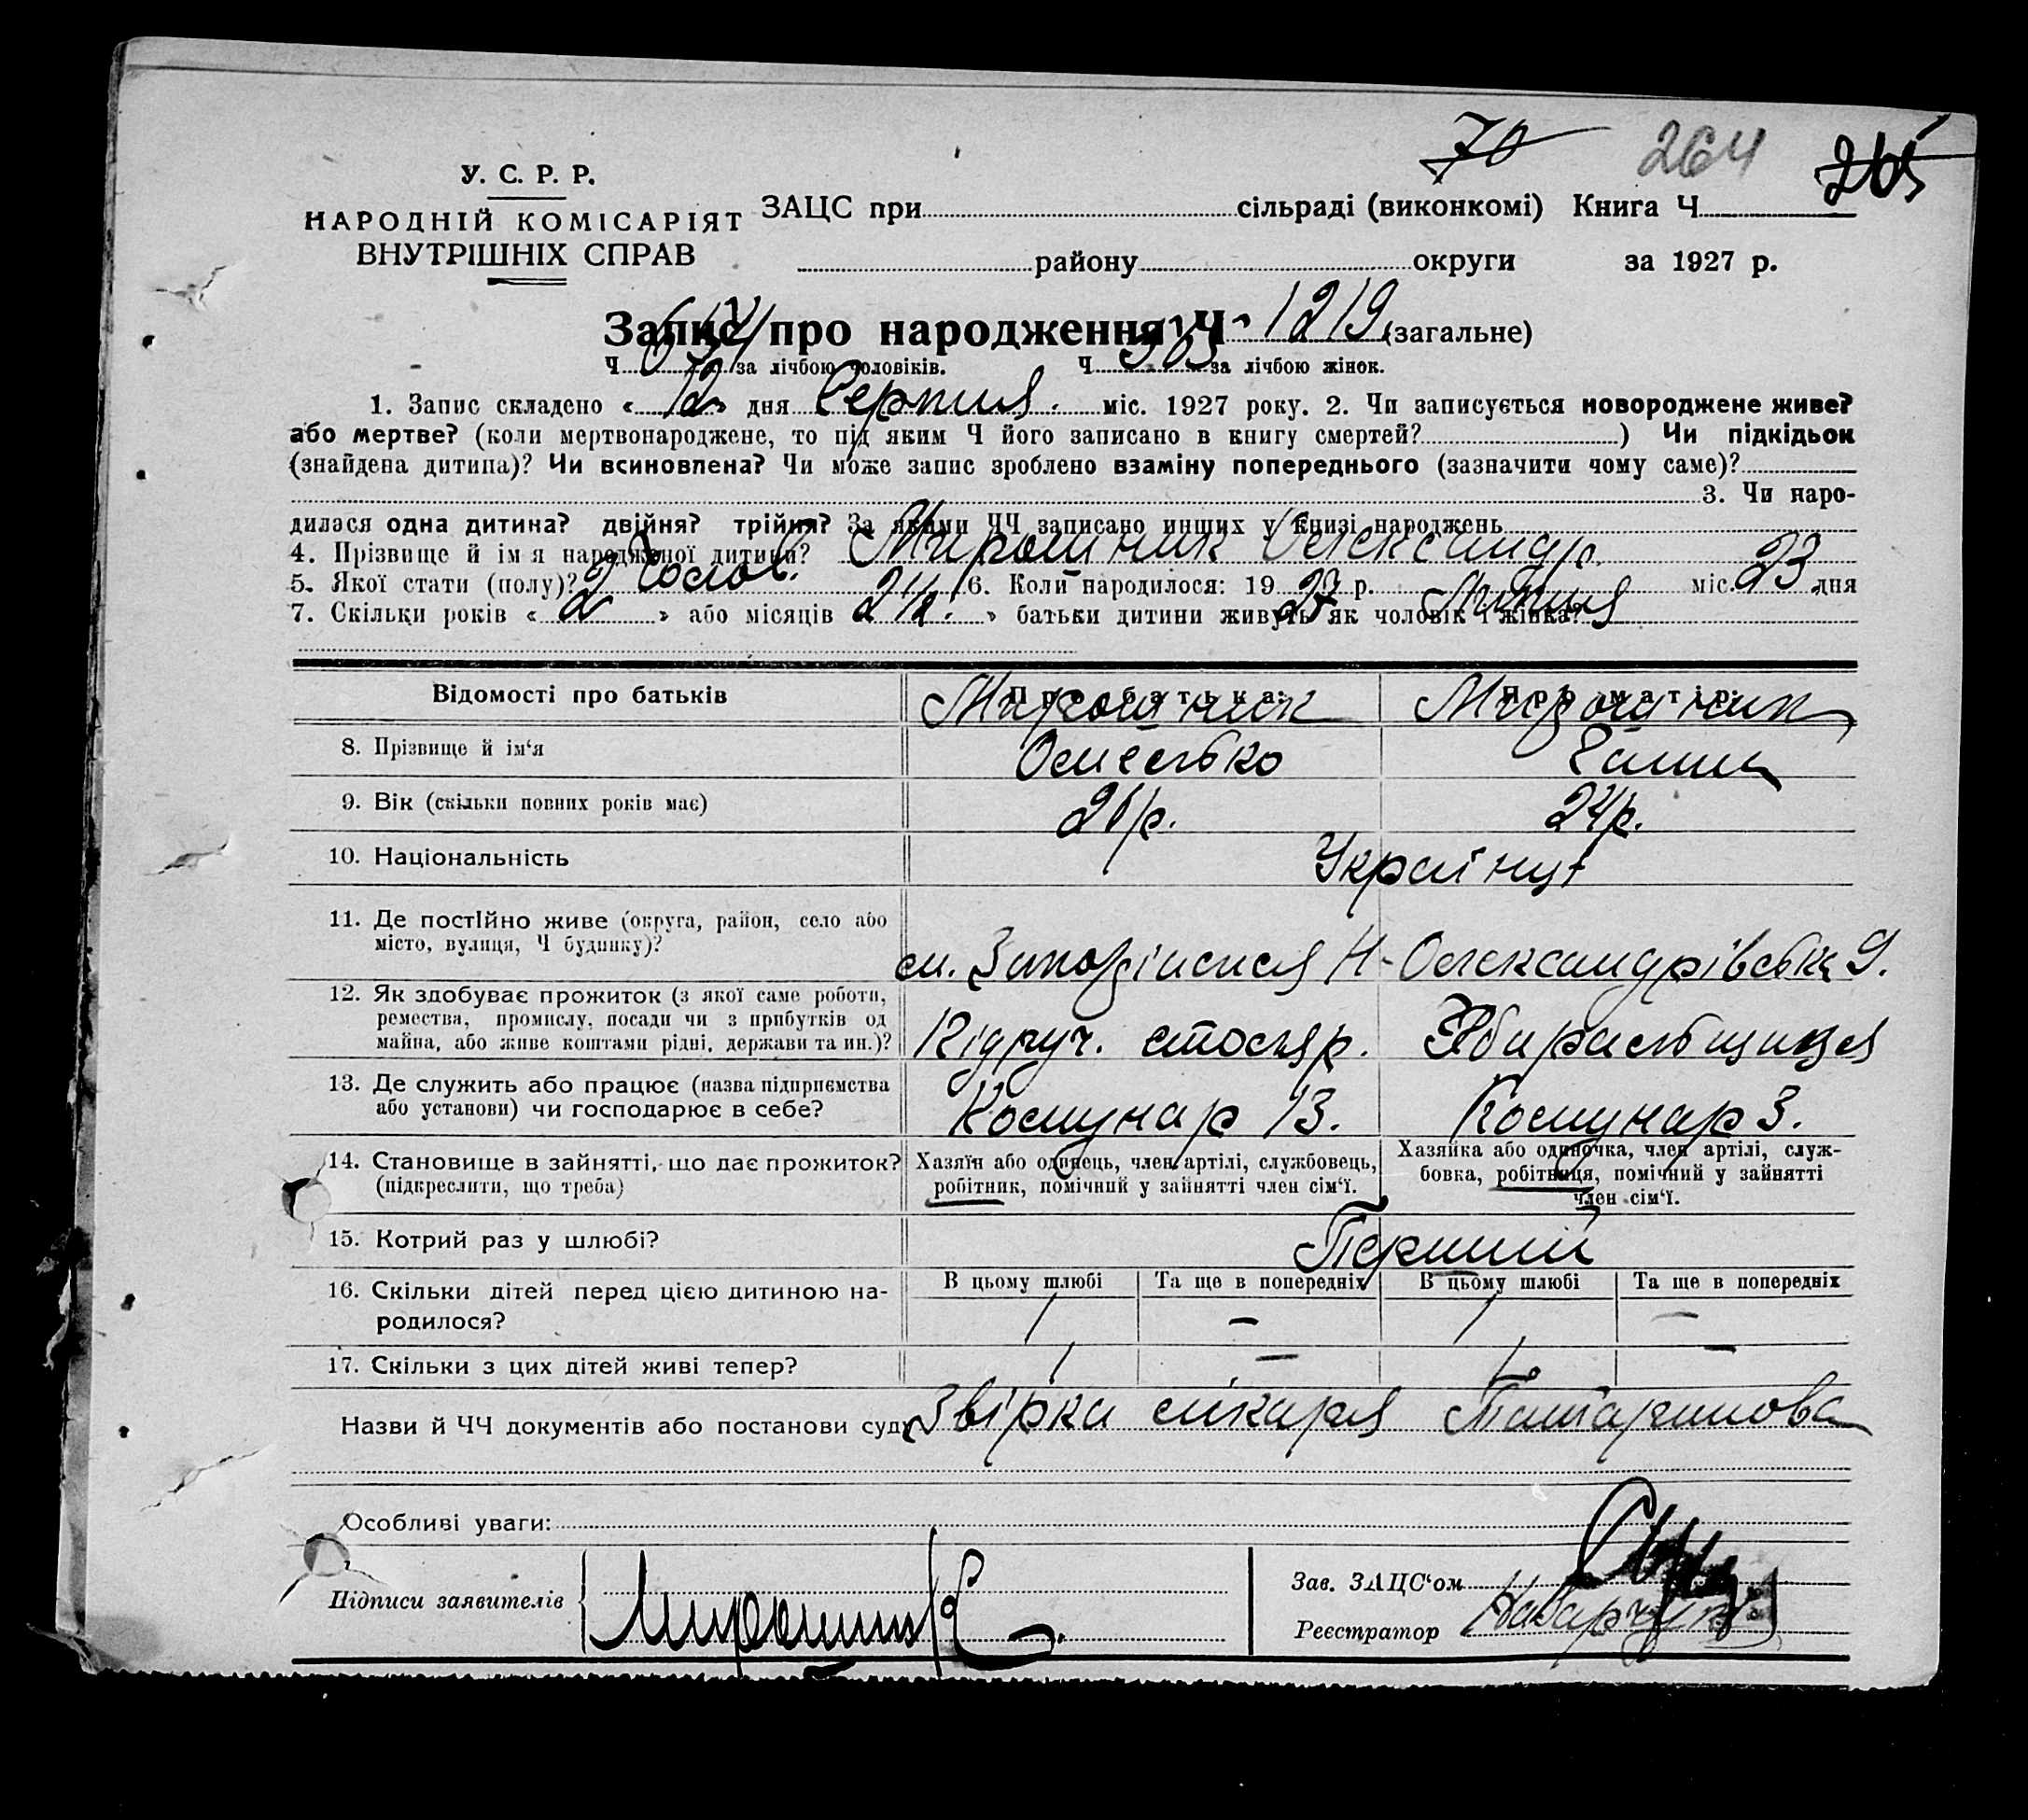 70 264 265
У. С. Р. Р.
НАРОДНІЙ КОМІСАРІЯТ
ВНУТРІШНІХ СПРАВ
ЗАЦС при сільраді (виконкомі) Книга Ч
району округи за 1927 р.
Запис про народження Ч 1219 (загальне)
Ч за лічбою чоловіків. Ч 565 за лічбою жінок.
1. Запис складено « 12 » дня Серпня міс. 1927 року. 2. Чи записується новороджене живе?
або мертве? (коли мертвонароджене, то під яким Ч його записано в книгу смертей? ) Чи підкідьок
(знайдена дитина)? Чи всиновлена? Чи може запис зроблено взаміну попереднього (зазначити чому саме)?
3. Чи наро-
дилася одна дитина? двійня? трійня? За якими ЧЧ записано инших у книзі народжень
4. Прізвище й ім'я народженої дитини? Мирошник Олександр.
5. Якої стати (полу)? Чолов. 6. Коли народилося: 1927 р. Липня міс. 23 дня
7. Скільки років « 2 » або місяців « 24 » батьки дитини живуть як чоловік і жінка?
Відомості про батьків Про батька: Про матір:
Мирошник Мирошник
8. Прізвище й ім'я Омелько Ганна
9. Вік (скільки повних років має) 26р. 24р.
10. Національність Українці
11. Де постійно живе (округа, район, село або
місто, вулиця, Ч будинку)?
м. Запоріжжя Н-Олександрівська 9.
12. Як здобуває прожиток (з якої саме роботи,
ремества, промислу, посади чи з прибутків од
майна, або живе коштами рідні, держави та ин.)?
Підруч. столяр. Збиральщиця
13. Де служить або працює (назва підприємства
або установи) чи господарює в себе?
Комунар 13. Комунар 3.
14. Становище в зайнятті, що дає прожиток?
(підкреслити, що треба)
Хазяїн або одинець, член артілі, службовець,
робітник, помічний у зайнятті член сім'ї.
Хазяйка або одиночка, член артілі, служ-
бовка, робітниця, помічний у зайнятті
член сім'ї.
15. Котрий раз у шлюбі? Перший
В цьому шлюбі Та ще в попередніх В цьому шлюбі Та ще в попередніх
16. Скільки дітей перед цією дитиною на-
родилося?
1 — 1 —
17. Скільки з цих дітей живі тепер? 1 — 1 —
Назви й ЧЧ документів або постанови суду Звірка лікаря
Особливі уваги:
Підписи заявителів Мирошник
Зав. ЗАЦС'ом
Реєстратор